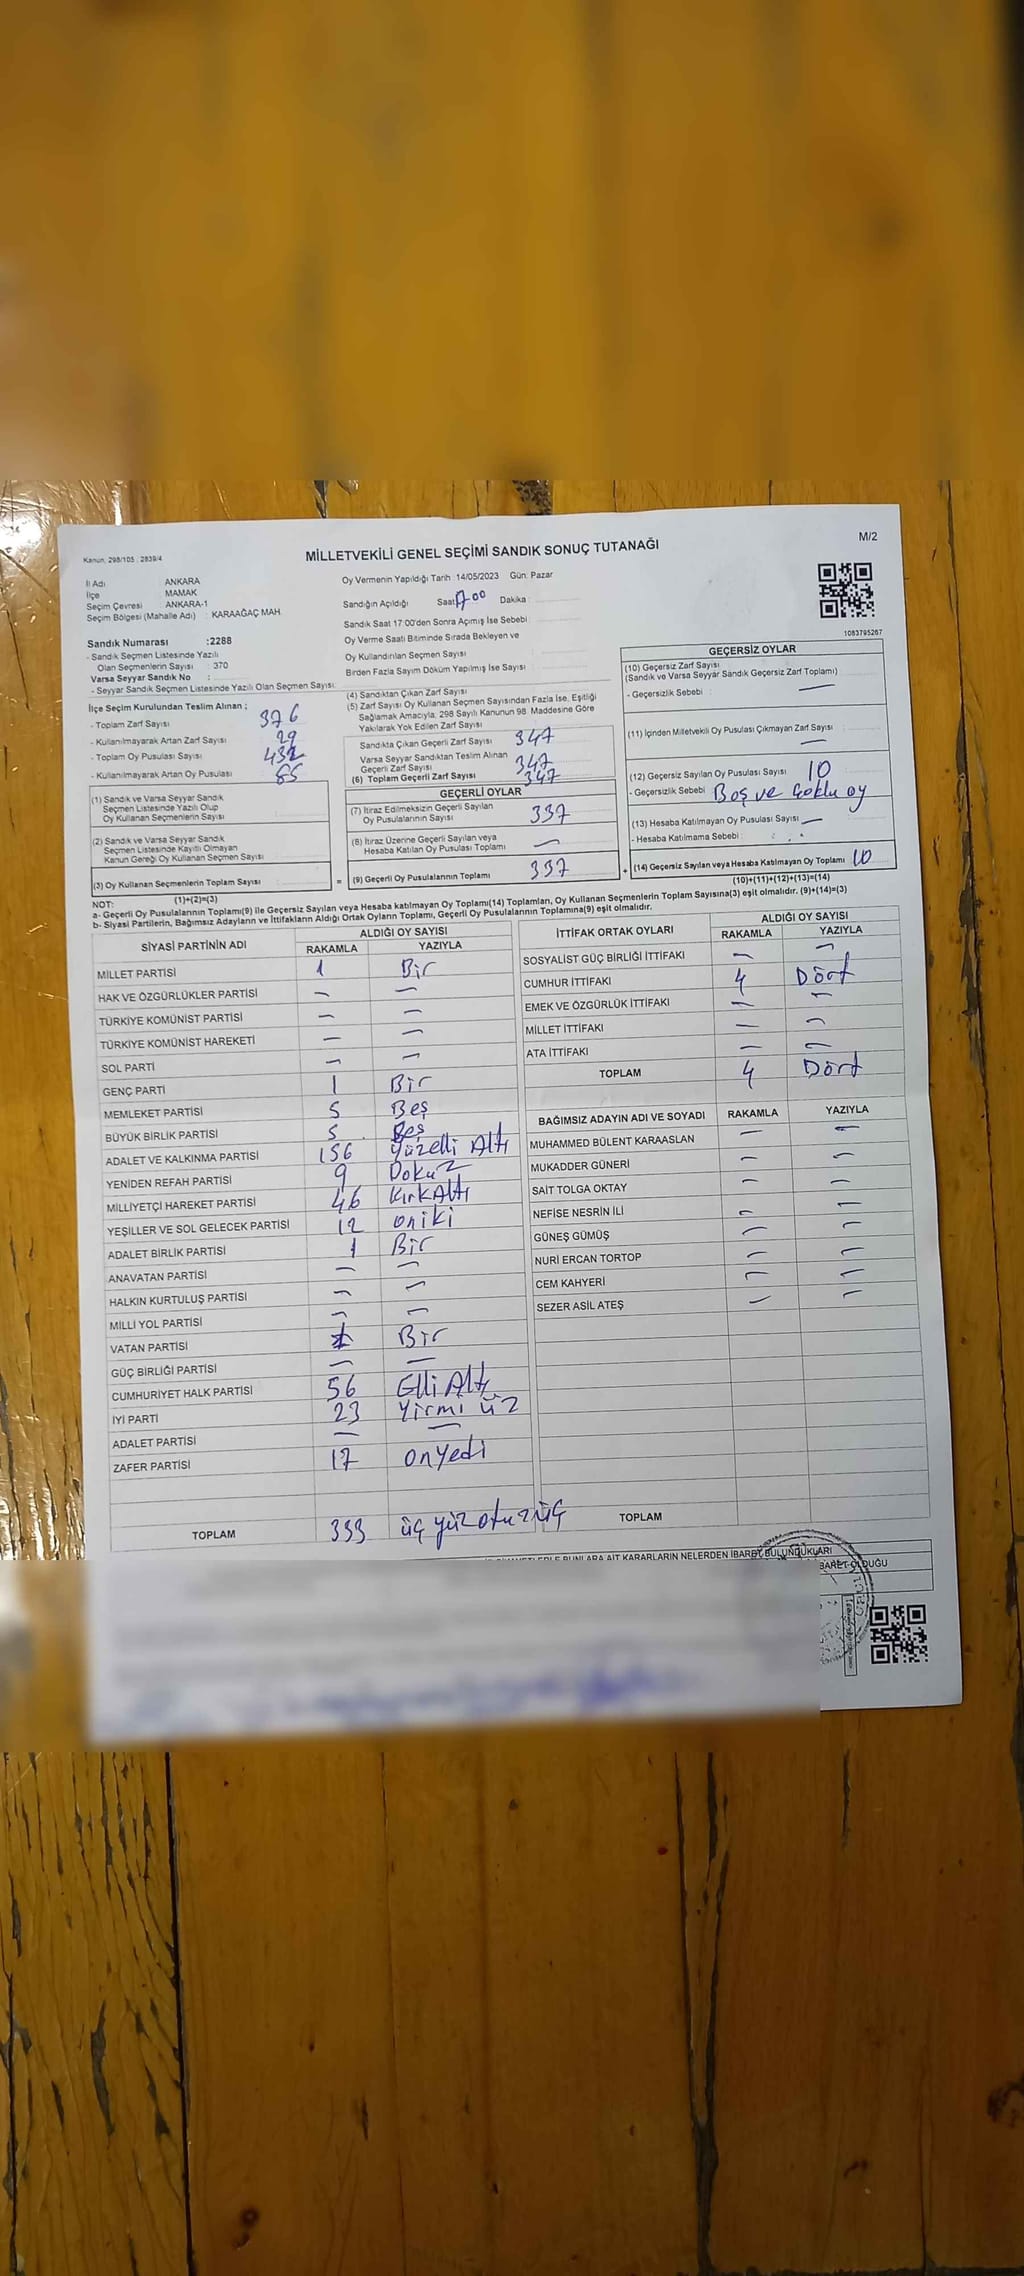 Kanun: 298/105 : 2839/4
MİLLETVEKİLİ GENEL SEÇİMİ SANDIK SONUÇ TUTANAĞI
M/2
İl Adı ANKARA
İlçe MAMAK
Seçim Çevresi ANKARA-1
Seçim Bölgesi (Mahalle Adı) : KARAAĞAÇ MAH.
Sandık Numarası :2288
- Sandık Seçmen Listesinde Yazılı
Olan Seçmenlerin Sayısı : 370
Varsa Seyyar Sandık No :
- Seyyar Sandık Seçmen Listesinde Yazılı Olan Seçmen Sayısı:
İlçe Seçim Kurulundan Teslim Alınan ;
- Toplam Zarf Sayısı 376
- Kullanılmayarak Artan Zarf Sayısı 29
- Toplam Oy Pusulası Sayısı 432
- Kullanılmayarak Artan Oy Pusulası 85
(1) Sandık ve Varsa Seyyar Sandık
Seçmen Listesinde Yazılı Olup
Oy Kullanan Seçmenlerin Sayısı :
(2) Sandık ve Varsa Seyyar Sandık
Seçmen Listesinde Kayıtlı Olmayan
Kanun Gereği Oy Kullanan Seçmen Sayısı :
(3) Oy Kullanan Seçmenlerin Toplam Sayısı
(1)+(2)=(3)
Oy Vermenin Yapıldığı Tarih :14/05/2023 Gün: Pazar
Sandığın Açıldığı Saat 17-00 Dakika :
Sandık Saat 17:00'den Sonra Açımış İse Sebebi :
Oy Verme Saati Bitiminde Sırada Bekleyen ve
Oy Kullandırılan Seçmen Sayısı :
Birden Fazla Sayım Döküm Yapılmış İse Sayısı :
(4) Sandıktan Çıkan Zarf Sayısı
(5) Zarf Sayısı Oy Kullanan Seçmen Sayısından Fazla İse, Eşitliği
Sağlamak Amacıyla, 298 Sayılı Kanunun 98. Maddesine Göre
Yakılarak Yok Edilen Zarf Sayısı :
Sandıkta Çıkan Geçerli Zarf Sayısı 347
Varsa Seyyar Sandıktan Teslim Alınan
Geçerli Zarf Sayısı 347
(6) Toplam Geçerli Zarf Sayısı 347
GEÇERLİ OYLAR
(7) İtiraz Edilmeksizin Geçerli Sayılan
Oy Pusulalarının Sayısı 337
(8) İtiraz Üzerine Geçerli Sayılan veya
Hesaba Katılan Oy Pusulası Toplamı —
= (9) Geçerli Oy Pusulalarının Toplamı 337 +
1083795267
GEÇERSİZ OYLAR
(10) Geçersiz Zarf Sayısı
(Sandık ve Varsa Seyyar Sandık Geçersiz Zarf Toplamı)
- Geçersizlik Sebebi : —
(11) İçinden Milletvekili Oy Pusulası Çıkmayan Zarf Sayısı
—
(12) Geçersiz Sayılan Oy Pusulası Sayısı 10
- Geçersizlik Sebebi : Boş ve Çoklu oy
(13) Hesaba Katılmayan Oy Pusulası Sayısı —
- Hesaba Katılmama Sebebi :
(14) Geçersiz Sayılan veya Hesaba Katılmayan Oy Toplamı 10
(10)+(11)+(12)+(13)=(14)
NOT:
a- Geçerli Oy Pusulalarının Toplamı(9) ile Geçersiz Sayılan veya Hesaba katılmayan Oy Toplamı(14) Toplamları, Oy Kullanan Seçmenlerin Toplam Sayısına(3) eşit olmalıdır. (9)+(14)=(3)
b- Siyasi Partilerin, Bağımsız Adayların ve İttifakların Aldığı Ortak Oyların Toplamı, Geçerli Oy Pusulalarının Toplamına(9) eşit olmalıdır.
SİYASİ PARTİNİN ADI ALDIĞI OY SAYISI
RAKAMLA YAZIYLA
MİLLET PARTİSİ 1 Bir
HAK VE ÖZGÜRLÜKLER PARTİSİ — —
TÜRKİYE KOMÜNİST PARTİSİ — —
TÜRKİYE KOMÜNİST HAREKETİ — —
SOL PARTİ — —
GENÇ PARTİ 1 Bir
MEMLEKET PARTİSİ 5 Beş
BÜYÜK BİRLİK PARTİSİ 5 Beş
ADALET VE KALKINMA PARTİSİ 156 Yüzelli Altı
YENİDEN REFAH PARTİSİ 9 Dokuz
MİLLİYETÇİ HAREKET PARTİSİ 46 KırkAltı
YEŞİLLER VE SOL GELECEK PARTİSİ 12 oniki
ADALET BİRLİK PARTİSİ 1 Bir
ANAVATAN PARTİSİ — —
HALKIN KURTULUŞ PARTİSİ — —
MİLLİ YOL PARTİSİ — —
VATAN PARTİSİ 1 Bir
GÜÇ BİRLİĞİ PARTİSİ — —
CUMHURİYET HALK PARTİSİ 56 Elli Altı
İYİ PARTİ 23 Yirmi üç
ADALET PARTİSİ — —
ZAFER PARTİSİ 17 onyedi
TOPLAM 333 üç yüz otuz üç
İTTİFAK ORTAK OYLARI ALDIĞI OY SAYISI
RAKAMLA YAZIYLA
SOSYALİST GÜÇ BİRLİĞİ İTTİFAKI — —
CUMHUR İTTİFAKI 4 Dört
EMEK VE ÖZGÜRLÜK İTTİFAKI — —
MİLLET İTTİFAKI — —
ATA İTTİFAKI — —
TOPLAM 4 Dört
BAĞIMSIZ ADAYIN ADI VE SOYADI RAKAMLA YAZIYLA
MUHAMMED BÜLENT KARAASLAN — —
MUKADDER GÜNERİ — —
SAİT TOLGA OKTAY — —
NEFİSE NESRİN İLİ — —
GÜNEŞ GÜMÜŞ — —
NURİ ERCAN TORTOP — —
CEM KAHYERİ — —
SEZER ASİL ATEŞ — —
TOPLAM
BUNLARA AİT KARARLARIN NELERDEN İBARET BULUNDUKLARI
İBARET OLDUĞU